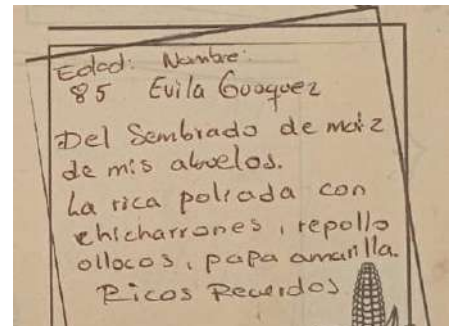 Edad: Nombre:
85 Evila Guaquez
Del Sembrado de maiz
de mis abuelos.
La rica poliada con
chicharrones, repollo
ollocos, papa amarilla.
Ricos Recuerdos